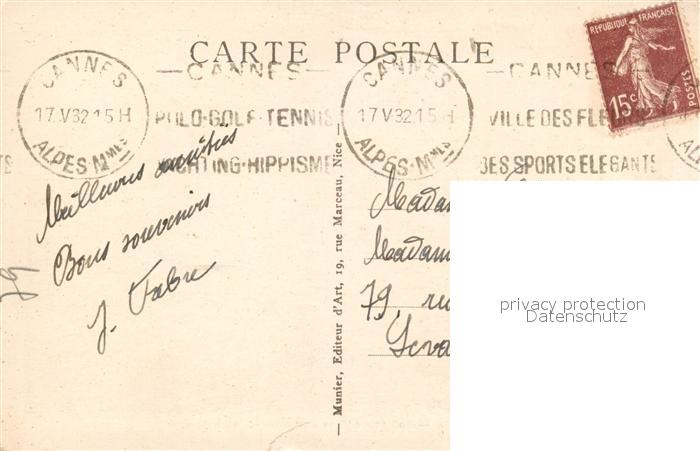 CARTE POSTALE
CANNES
17.V32.15H
ALPES-MMES
CANNES
POLO-GOLF-TENNIS
YACHTING-HIPPISME
CANNES
17.V32.15H
ALPES-MMES
CANNES
VILLE DES FLEU
DES SPORTS ELEGANTS
REPUBLIQUE FRANÇAISE
15c
POSTES
Meilleures amitiés
Bons souvenirs
J. Fabre
79
— Munier, Editeur d'Art, 19, rue Marceau, Nice —
Madam
Madam
79, ru
Leva
privacy protection
Datenschutz